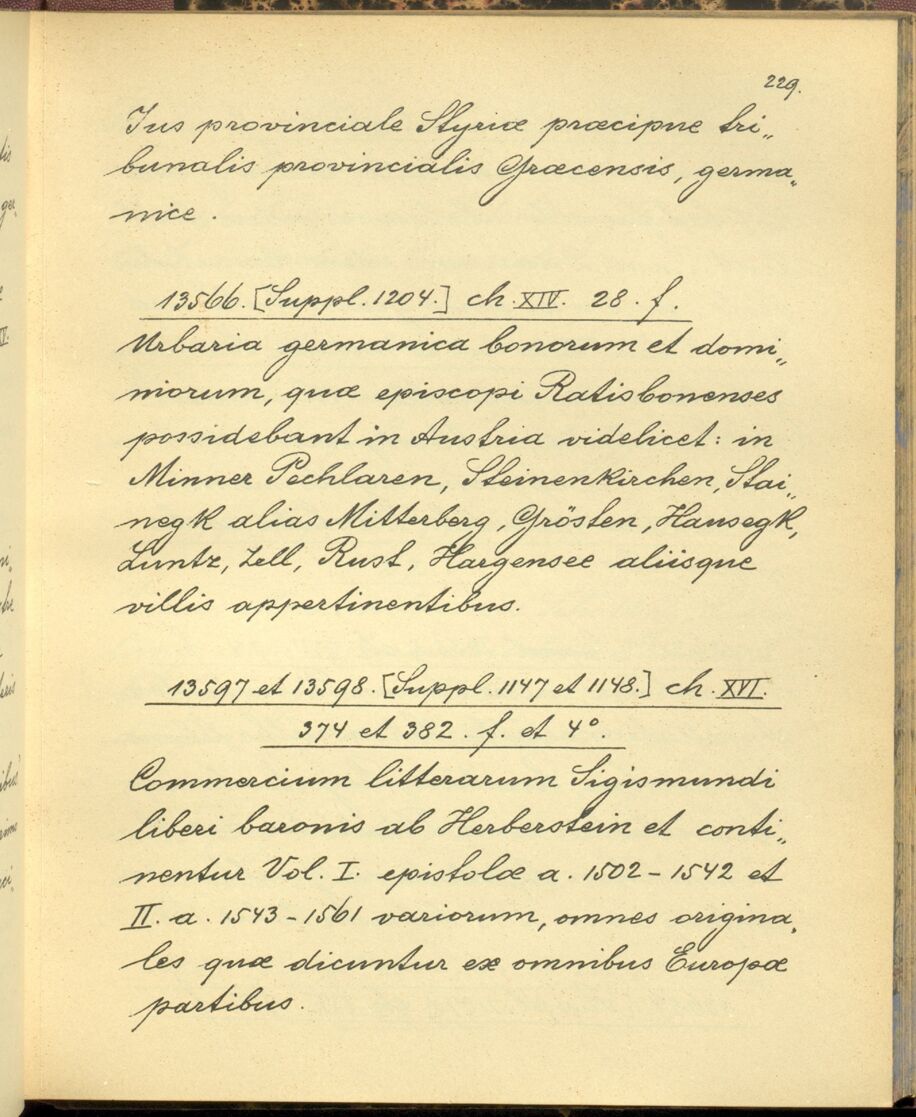 229.
Jus provinciale Styriæ præcipue tri„
bunalis provincialis Græcensis, germa„
nice.
13566. [Suppl. 1204.] ch. XIV. 28. f.
Urbaria germanica bonorum et domi„
niorum, quæ episcopi Ratisbonenses
possidebant in Austria videlicet: in
Minner Pechlaren, Steinenkirchen, Stai„
negk alias Mitterberg, Grösten, Hausegk,
Luntz, Zell, Rust, Hargensee aliisque
villis appertinentibus.
13597 et 13598. [Suppl. 1147 et 1148.] ch. XVI.
374 et 382. f. et 4°.
Commercium litterarum Sigismundi
liberi baronis ab Herberstein et conti„
nentur Vol. I. epistolæ a. 1502-1542 et
II. a. 1543-1561 variorum, omnes origina„
les quæ dicuntur ex omnibus Europæ
partibus.